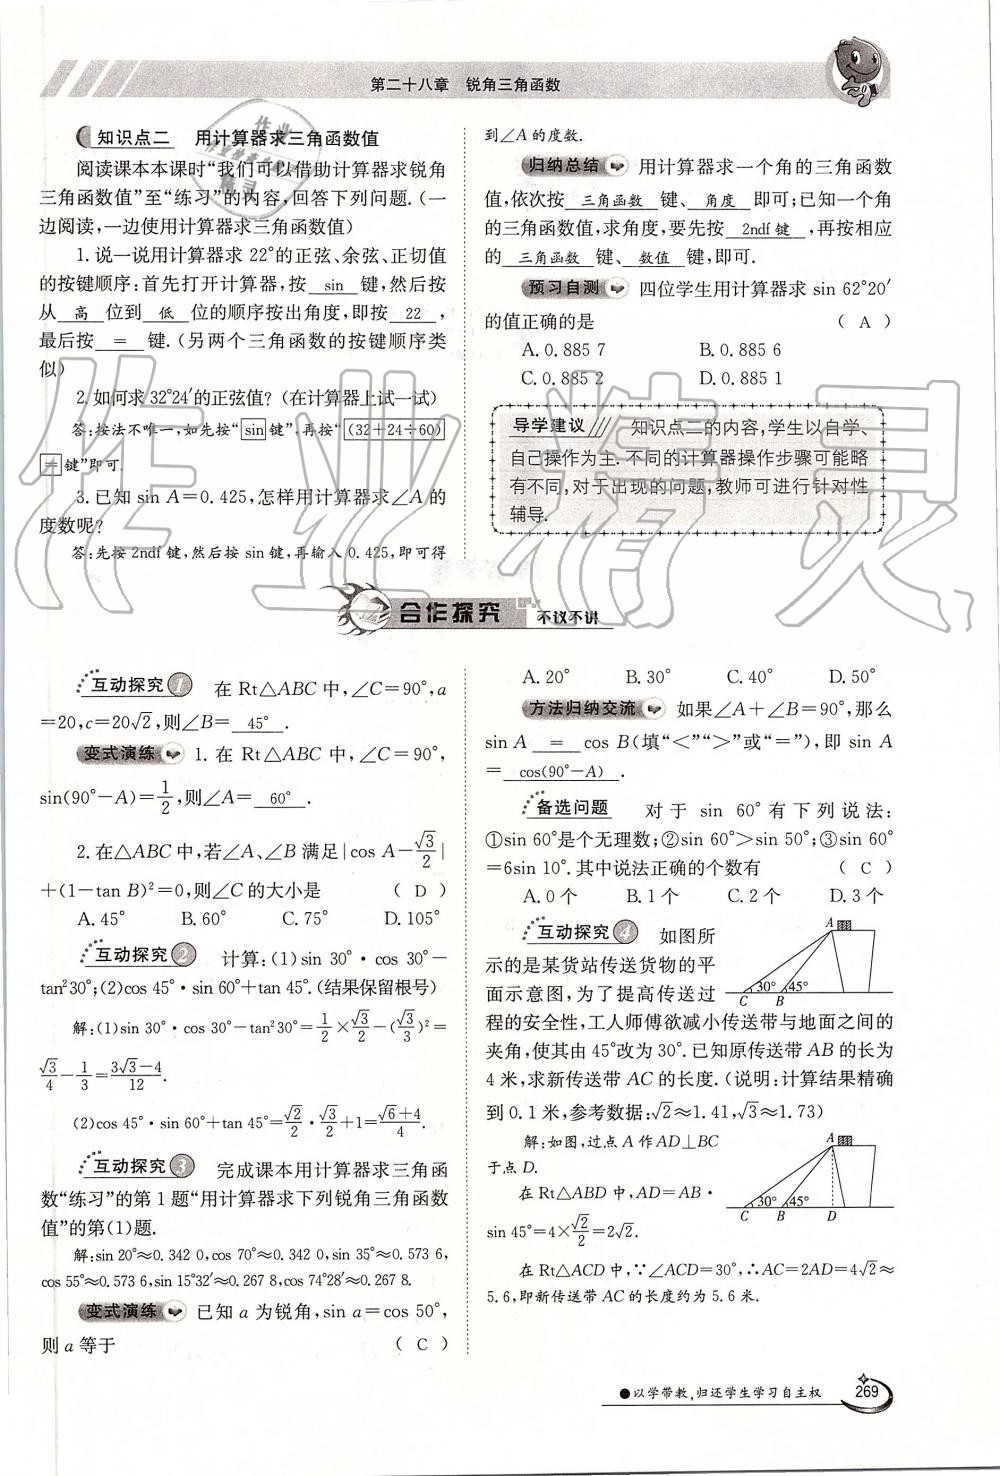 第二十八章　锐角三角函数
知识点二　用计算器求三角函数值
阅读课本本课时“我们可以借助计算器求锐角
三角函数值”至“练习”的内容,回答下列问题.(一
边阅读,一边使用计算器求三角函数值)
1.说一说用计算器求22°的正弦、余弦、正切值
的按键顺序:首先打开计算器,按 sin 键,然后按
从 高 位到 低 位的顺序按出角度,即按 22 ,
最后按 = 键.(另两个三角函数的按键顺序类
似)
2.如何求32°24′的正弦值?(在计算器上试一试)
答:按法不唯一,如先按“sin键”.再按“(32+24÷60)
=键”即可.
3.已知sin A=0.425,怎样用计算器求∠A的
度数呢?
答:先按2ndf键,然后按sin键,再输入0.425,即可得
到∠A的度数.
归纳总结　用计算器求一个角的三角函数
值,依次按 三角函数 键、 角度 即可;已知一个角
的三角函数值,求角度,要先按 2ndf键 ,再按相应
的 三角函数 键、 数值 键,即可.
预习自测　四位学生用计算器求sin 62°20′
的值正确的是 ( A )
A.0.885 7 B.0.885 6
C.0.885 2 D.0.885 1
导学建议　知识点二的内容,学生以自学、
自己操作为主.不同的计算器操作步骤可能略
有不同,对于出现的问题,教师可进行针对性
辅导.
合作探究　不议不讲
互动探究1　在Rt△ABC中,∠C=90°,a
=20,c=20√2,则∠B= 45° .
变式演练　1.在Rt△ABC中,∠C=90°,
sin(90°-A)=1/2,则∠A= 60° .
2.在△ABC中,若∠A、∠B满足|cos A-√3/2|
+(1-tan B)²=0,则∠C的大小是 ( D )
A.45° B.60° C.75° D.105°
互动探究2　计算:(1)sin 30°·cos 30°-
tan²30°;(2)cos 45°·sin 60°+tan 45°.(结果保留根号)
解:(1)sin 30°·cos 30°-tan²30°=1/2×√3/2-(√3/3)²=
√3/4-1/3=(3√3-4)/12.
(2)cos 45°·sin 60°+tan 45°=√2/2·√3/2+1=(√6+4)/4.
互动探究3　完成课本用计算器求三角函
数“练习”的第1题“用计算器求下列锐角三角函数
值”的第(1)题.
解:sin 20°≈0.342 0,cos 70°≈0.342 0,sin 35°≈0.573 6,
cos 55°≈0.573 6,sin 15°32′≈0.267 8,cos 74°28′≈0.267 8.
变式演练　已知a为锐角,sin a=cos 50°,
则a等于 ( C )
A.20° B.30° C.40° D.50°
方法归纳交流　如果∠A+∠B=90°,那么
sin A = cos B(填“<”“>”或“=”),即sin A
= cos(90°-A) .
备选问题　对于sin 60°有下列说法:
①sin 60°是个无理数;②sin 60°>sin 50°;③sin 60°
=6sin 10°.其中说法正确的个数有 ( C )
A.0个 B.1个 C.2个 D.3个
互动探究4　如图所
示的是某货站传送货物的平
面示意图,为了提高传送过
程的安全性,工人师傅欲减小传送带与地面之间的
夹角,使其由45°改为30°.已知原传送带AB的长为
4米,求新传送带AC的长度.(说明:计算结果精确
到0.1米,参考数据:√2≈1.41,√3≈1.73)
A
30° 45°
C B
解:如图,过点A作AD⊥BC
于点D.
在Rt△ABD中,AD=AB·
sin 45°=4×√2/2=2√2.
A
30° 45°
C B D
在Rt△ACD中,∵∠ACD=30°,∴AC=2AD=4√2≈
5.6,即新传送带AC的长度约为5.6米.
●以学带教,归还学生学习自主权
269
作业精灵